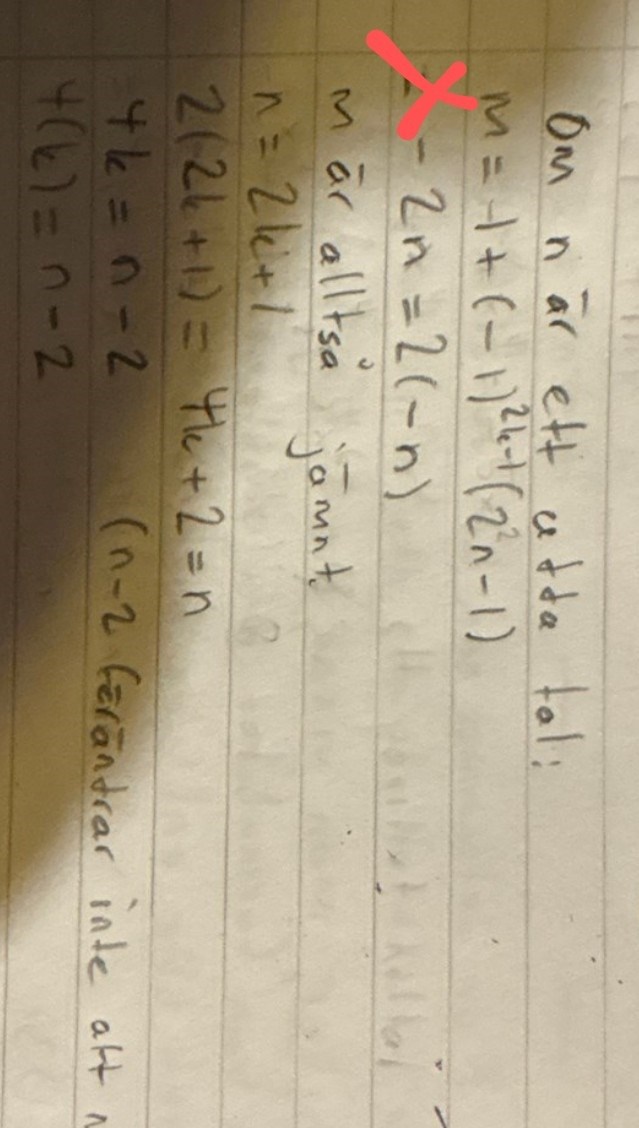 Om n är ett udda tal:
m = 1 + (-1)^{2k-1}(2^2n-1)
- 2n = 2(-n)
m är alltså jämnt.
n = 2k+1
2(2k+1) = 4k+2 = n
4k = n-2 (n-2 förändrar inte att
4(k) = n-2